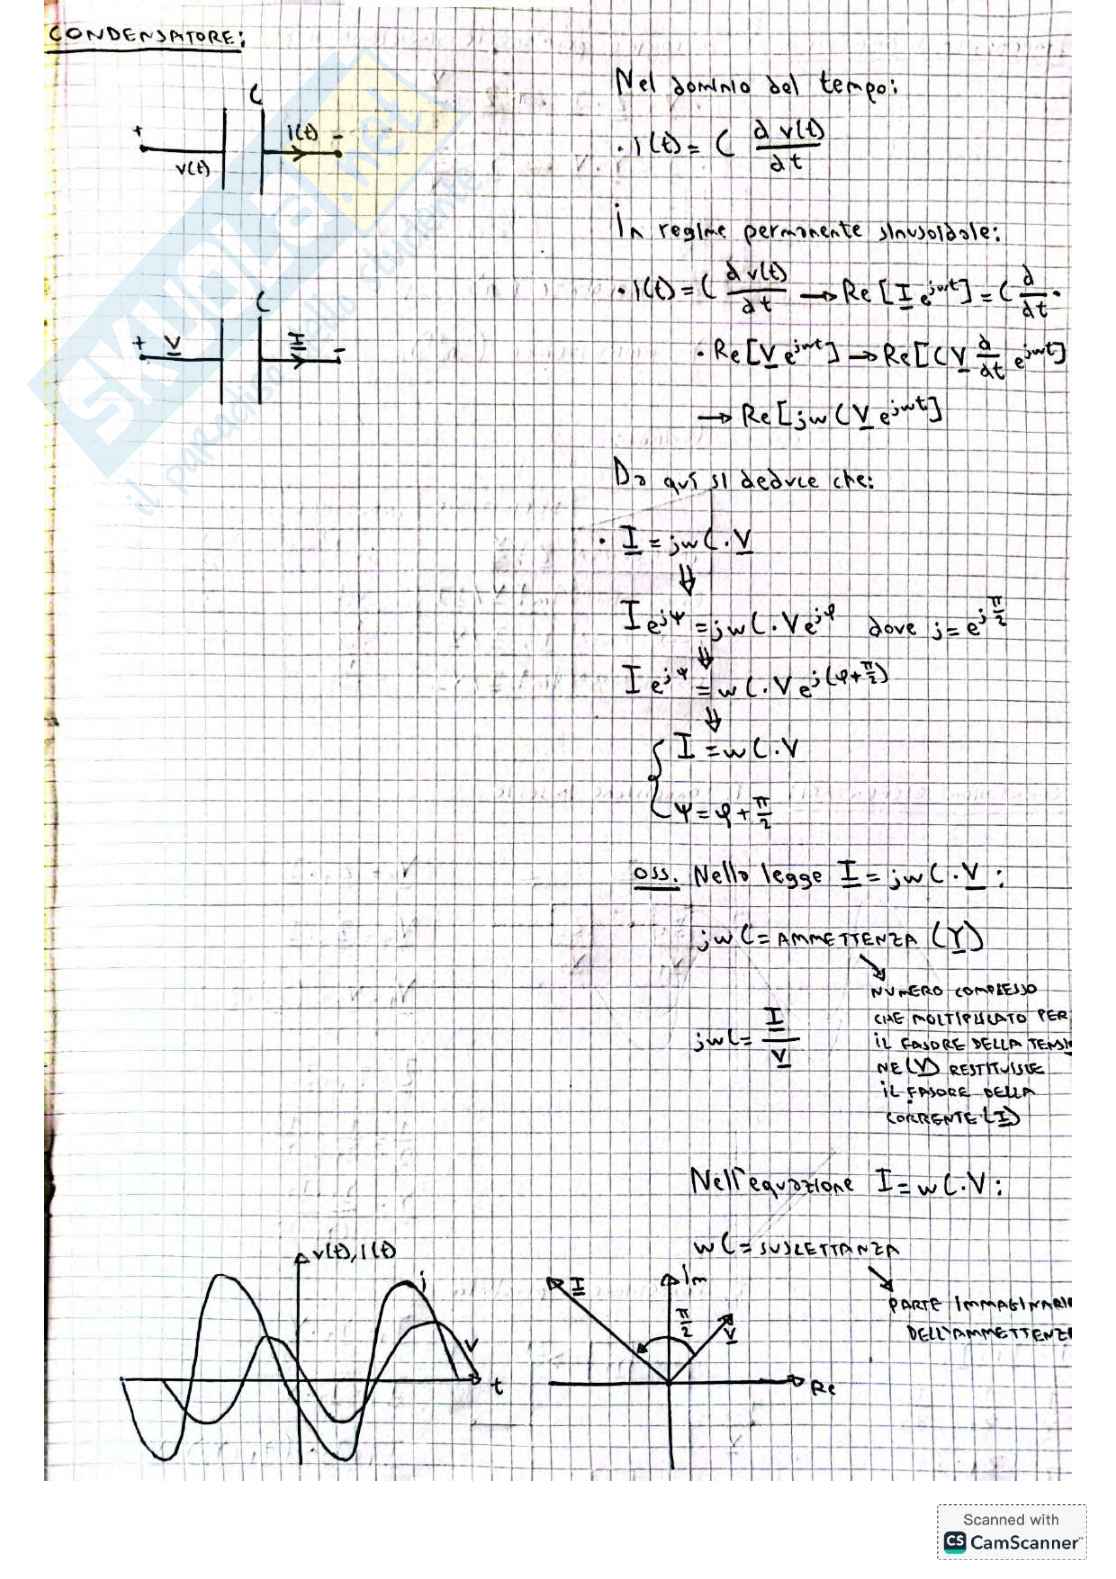 CONDENSATORE:
C
+ v(t) i(t) -
Nel dominio del tempo:
· i(t) = C d v(t) / dt
In regime permanente sinusoidale:
· i(t) = C d v(t) / dt → Re[I e^jwt] = C d/dt ·
· Re[V e^jwt] → Re[C V d/dt e^jwt]
→ Re[jw C V e^jwt]
C
+ V I -
Da qui si deduce che:
· I = jwC · V
⇓
I e^jψ = jwC · V e^jφ dove j = e^j π/2
⇓
I e^jψ = wC · V e^j(φ + π/2)
⇓
{ I = wC · V
ψ = φ + π/2
oss. Nella legge I = jwC · V :
jwC = AMMETTENZA (Y)
NUMERO COMPLESSO
CHE MOLTIPLICATO PER
IL FASORE DELLA TENSIO
NE (V) RESTITUISCE
IL FASORE DELLA
CORRENTE (I)
jwC = I / V
Nell'equazione I = wC · V :
wC = SUSCETTANZA
PARTE IMMAGINARIA
DELL'AMMETTENZA
v(t), i(t)
i
V
t
I
Im
π/2
V
Re
SKUOLA.net
il paradiso dello studente
Scanned with
CS CamScanner